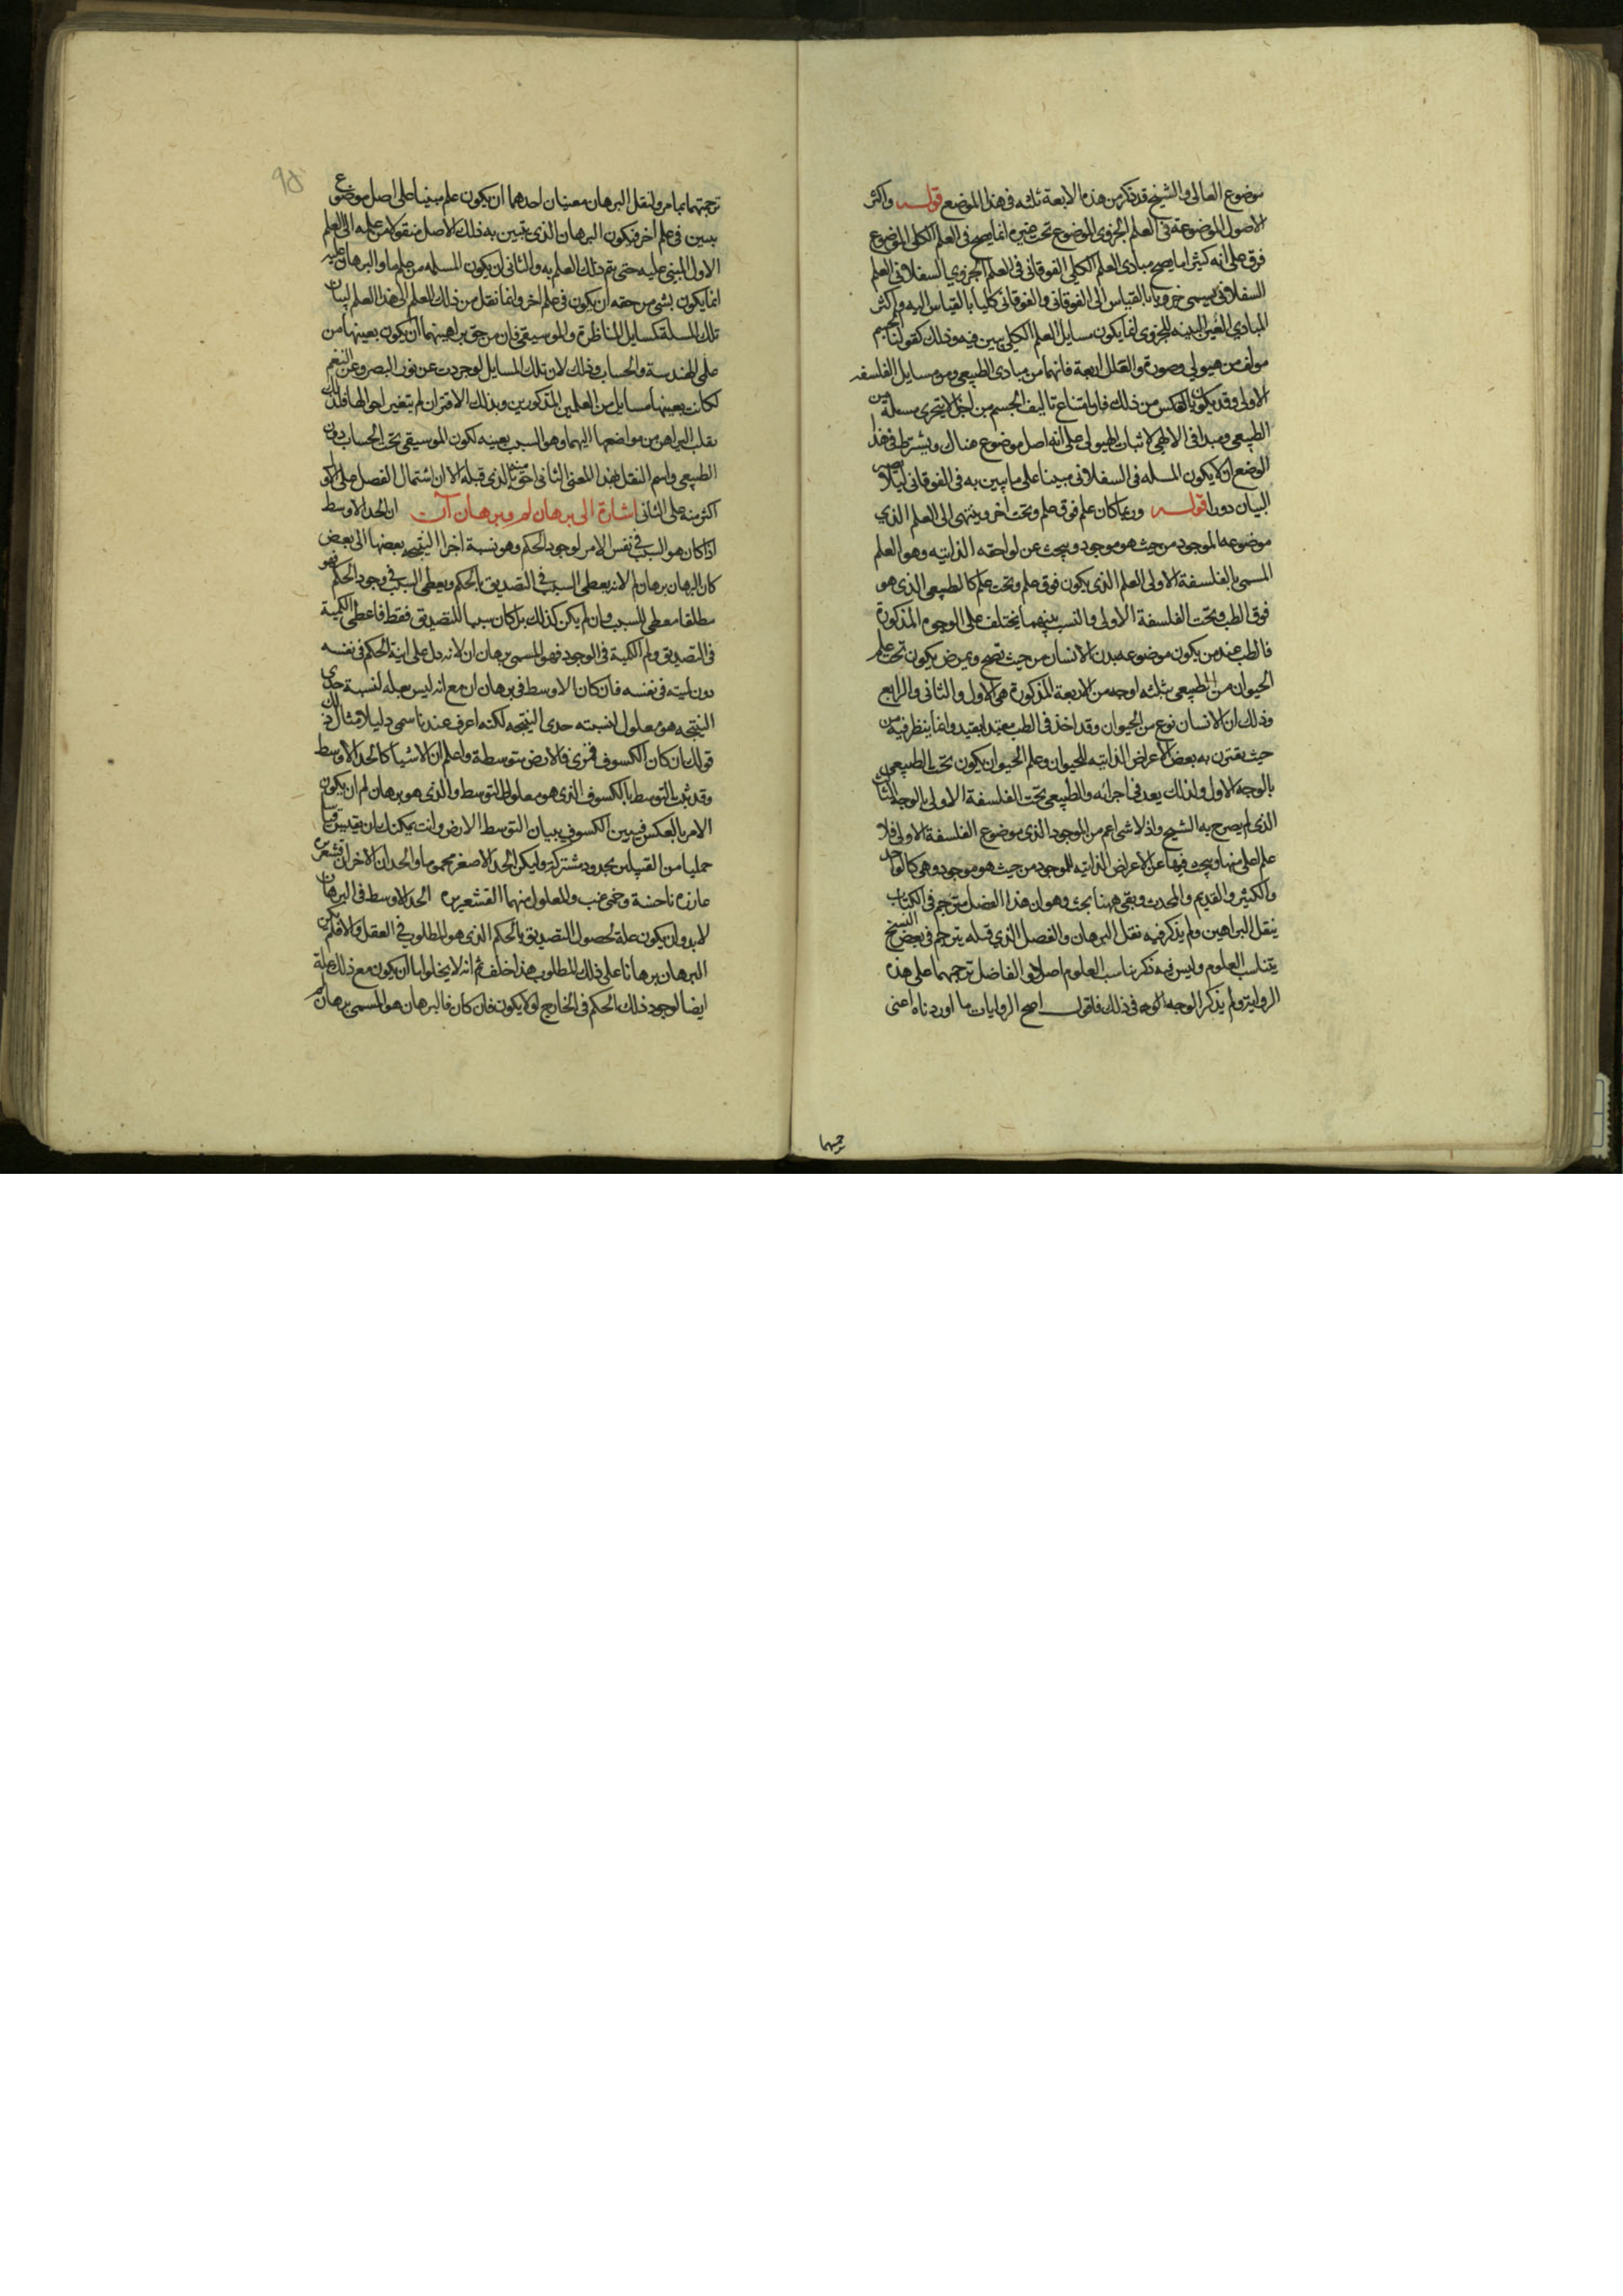 موضوع العالى والشيخ قد ذكر من هذه الاربعة ثلثه فى هذا الموضع قوله واكثر
الاصول الموضوعة فى العلم الجزوى الموضوع تحت غيره انما يصح فى العلم الكلى الموضوع
فوق على انه كثيرا ما يصح مبادى العلم الكلى الفوقانى فى العلم الجزوى السفلانى العلم
السفلانى يسمى جزويا بالقياس الى الفوقانى والفوقانى كليا بالقياس اليه واكثر
المبادى الغير البينه للجزوى انما يكون مسايل العلم الكلى يبين فيه وذلك كقولنا الجسم
مولف من هيولى وصورة والعلل اربعة فانهما من مبادى الطبيعى ومن مسايل الفلسفه
الاولى وقد يكون بالعكس من ذلك فان امتناع تاليف الجسم من اجزا لا يتجزى مسئلة من
الطبيعى ومبدا فى الالهى لاثبات الهيولى على انه اصل موضوع هناك ويشترط فى هذا
الوضع ان لا يكون المسله فى السفلانى مبينا على ما يبين به فى الفوقانى ليلا يصير
البيان دورا قوله وربما كان علم فوق علم وتحت اخر وينتهى الى العلم الذي
موضوعه الموجود من حيث هو موجود ويبحث عن لواحقه الذاتيه وهو العلم
المسمى بالفلسفة الاولى العلم الذى يكون فوق علم وتحت علم كالطبيعى الذى هو
فوق الطب وتحت الفلسفة الاولى والنسب بينهما يختلف على الوجوه المذكورة
فالطب عند من يكون موضوعه بدن الانسان من حيث تصح ويمرض يكون تحت علم
الحيوان من الطبيعى بثلثه اوجه من الاربعة المذكورة هى الاول والثانى والرابع
وذلك ان الانسان نوع من الحيوان وقد اخذ فى الطب مقيدا بقيد وانما ينظر فيه من
حيث يقترن به بعض الاعراض الذاتيه للحيوان وعلم الحيوان يكون تحت الطبيعى
بالوجه الاول ولذلك يعد فى اجزائه والطبيعى تحت الفلسفة الاولى بالوجه الثالث
الذى لم يصرح به الشيخ واذ لا شى اعم من الموجود الذى موضوع الفلسفة الاولى فلا
علم اعلى منها ويبحث فيها عن الاعراض الذاتيه للموجود من حيث هو موجود وهى كالواحد
والكثير والقديم والمحدث وبقى ههنا بحث وهو ان هذا الفصل مترجم فى الكتاب
بنقل البراهين ولم يذكر فيه نقل البرهان والفصل الذي قبله يترجم فى بعض النسخ
بتناسب العلوم وليس فيه ذكر تناسب العلوم اصلا والفاضل ترجمهما على هذه
الرواية ولم يذكر الوجه الوجه فى ذلك فاقول اصح الروايات ما اوردناه اعنى
ترجمتهما
ترجمتهما بما مر ولنقل البرهان معنيان احدهما ان يكون علم مبنيا على اصل موضوع
يبين فى علم اخر فيكون البرهان الذى يتبين به ذلك الاصل منقولا من علمه الى العلم
الاول المبنى عليه حتى يتم ذلك العلم به والثانى ان يكون المسله من علم ما والبرهان عليه
انما يكون بشى من حقه ان يكون فى علم اخر وانما نقل من ذلك العلم الى هذا العلم لبيان
تلك المسلة كمسايل المناظرة والموسيقى فان من حق براهينهما ان يكون بعينها من
علمى الهندسة والحساب وذلك لان تلك المسايل لو جردت عن نور البصر وعن النغم
لكانت بعينها مسايل من العلمين المذكورين وبذلك الاقتران لم يتغير احوالها فلذلك
نقلت البراهن من مواضعها اليهما وهو السبب بعينه لكون الموسيقى تحت الحساب دون
الطبيعى واسم النقل بهذا المعنى الثانى احق منه بالذى قبله الا ان اشتمال الفصل على الاول
اكثر منه على الثانى اشارة الى برهان لم وبرهان ان ان الحد الاوسط
اذا كان هو السبب فى نفس الامر لوجود الحكم وهو نسبة اجزا النتيجه بعضها الى بعض
كان البرهان برهان لم لانه يعطى السبب فى التصديق بالحكم ويعطى السبب فى وجود الحكم فهو
مطلقا معطى للسبب وان لم يكن كذلك بل كان سببا للتصديق فقط فاعطى اللمية
فى التصديق ولم اللمية فى الوجود فهو المسمى برهان ان لانه دل على انية الحكم فى نفسه
دون لميته فى نفسه فان كان الاوسط فى برهان ان مع انه ليس بعله لنسبة حدى
النتيجه هو معلول لنسبته حدى النتيجه لكنه اعرف عندنا سمى دليلا مثال ذلك
قولك ان كان الكسوف قمرى فالارض متوسطة واعلم ان الاشيا كالحد الاوسط
وقد بين التوسط بالكسوف الذى هو معلول التوسط والذى هو برهان لم ان يكون
الامر بالعكس فيبين الكسوف ببيان التوسط الارض وانت يمكنك ان تقيس قياسا
حمليا من القبيلين بحدود مشتركة وليكن الحد الاصغر محموما والحدان الاخران قشعريرة
غارزة ناخسة وحمى غب والمعلول منهما القشعريره الحد الاوسط فى البرهان
لابد وان يكون علة لحصول التصديق بالحكم الذى هو المطلوب فى العقل والا فلم يكن
البرهان برهانا على ذلك المطلوب هذا خلف ثم انه لا يخلو اما ان يكون مع ذلك علة
ايضا لوجود ذلك الحكم فى الخارج او لا يكون فان كان فالبرهان هو المسمى برهان لم